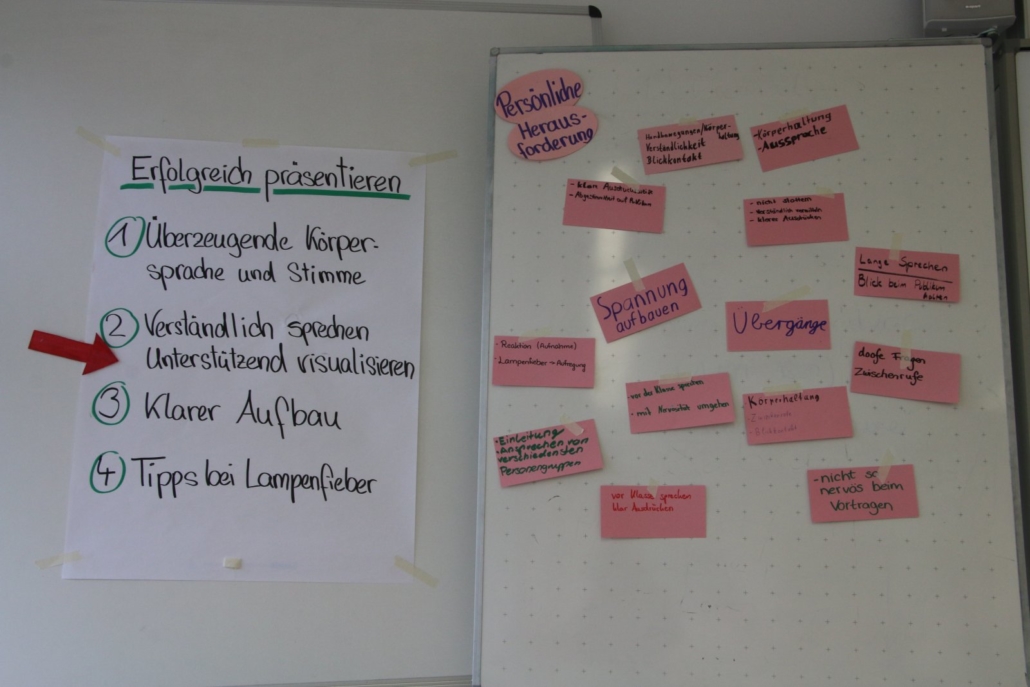 Erfolgreich präsentieren
1 Überzeugende Körper-
sprache und Stimme
2 Verständlich sprechen
Unterstützend visualisieren
3 Klarer Aufbau
4 Tipps bei Lampenfieber
Persönliche
Heraus-
forderung
Handbewegungen/Körper-
haltung
Verständlichkeit
Blickkontakt
- Körperhaltung
- Aussprache
- nicht stottern
Lange Sprechen
Blick beim Publikum
Spannung
aufbauen
Übergänge
- Reaktion (Aufnahme)
- Lampenfieber → Aufregung
doofe Fragen
Zwischenrufe
- vor der Klasse sprechen
- mit Nervosität umgehen
Körperhaltung
- Einleitung
- Ansprechen von
verschiedensten
Personengruppen
vor Klasse sprechen
klar Ausdrücken
- nicht so
nervös beim
Vortragen